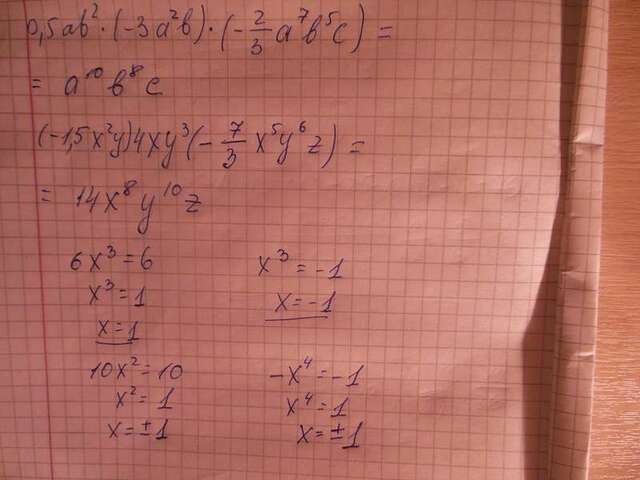 0,5ab²·(-3a²b)·(-2/3 a⁷b⁵c) =
= a¹⁰b⁸c
(-1,5x²y)4xy³(-7/3 x⁵y⁶z) =
= 14x⁸y¹⁰z
6x³=6
x³=1
x=1
x³=-1
x=-1
10x²=10
x²=1
x=±1
-x⁴=-1
x⁴=1
x=±1